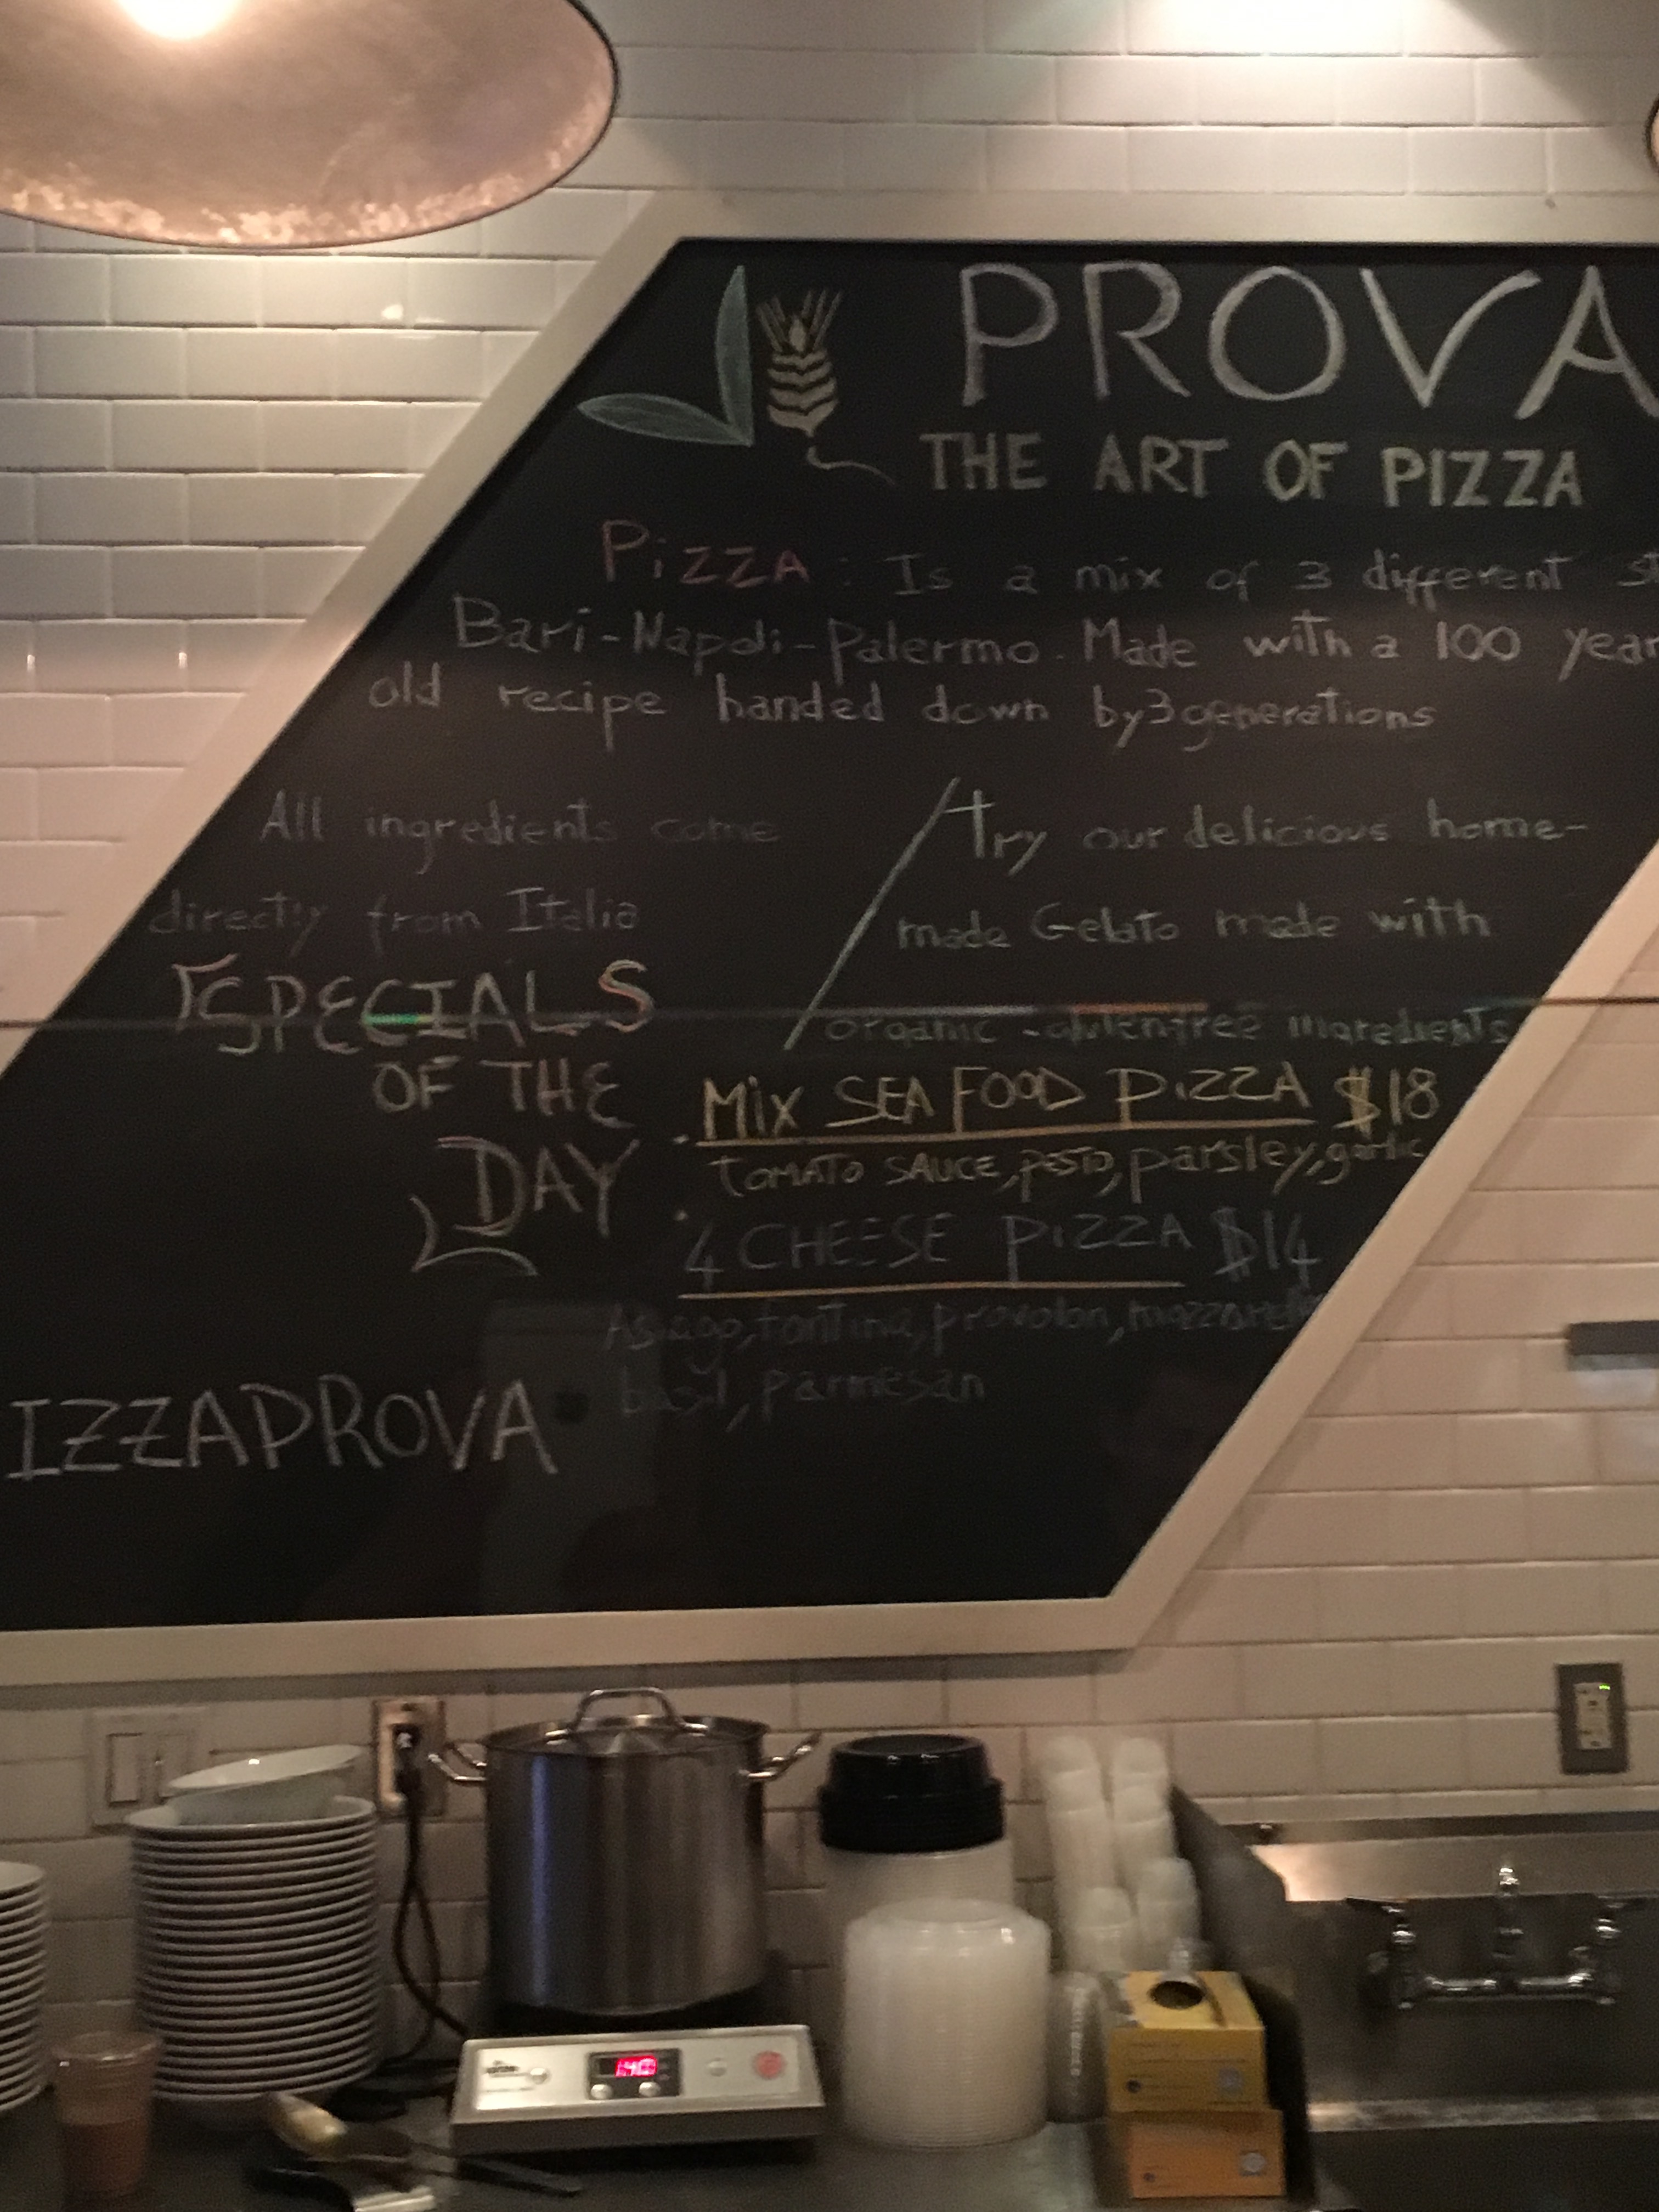 PROVA
THE ART OF PIZZA
PiZZA : Is a mix of 3 different st
Bari-Napoli-Palermo. Made with a 100 year
old recipe handed down by 3 generations
All ingredients come
directly from Italia
try our delicious home-
made Gelato made with
organic - glutenfree ingredients
SPECIALS
OF THE
DAY
. Mix SEAFOOD PiZZA $18
TOMATO SAUCE, PESTO, parsley, garlic
. 4 CHEESE PiZZA $14
Asiago, fontina, provolon, mozzarella
basil, parmesan
IZZAPROVA